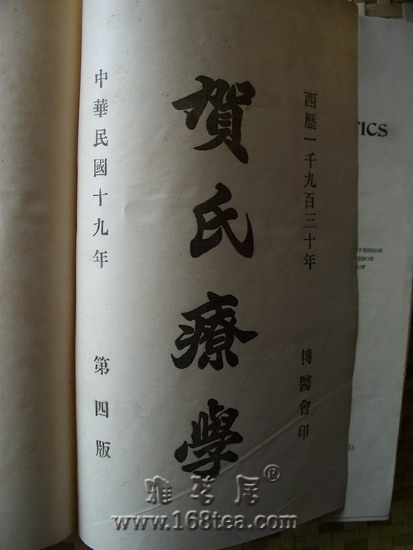 西歷一千九百三十年　博醫會印
賀氏療學
中華民國十九年　第四版
TICS
雅茗居®
www.168tea.com